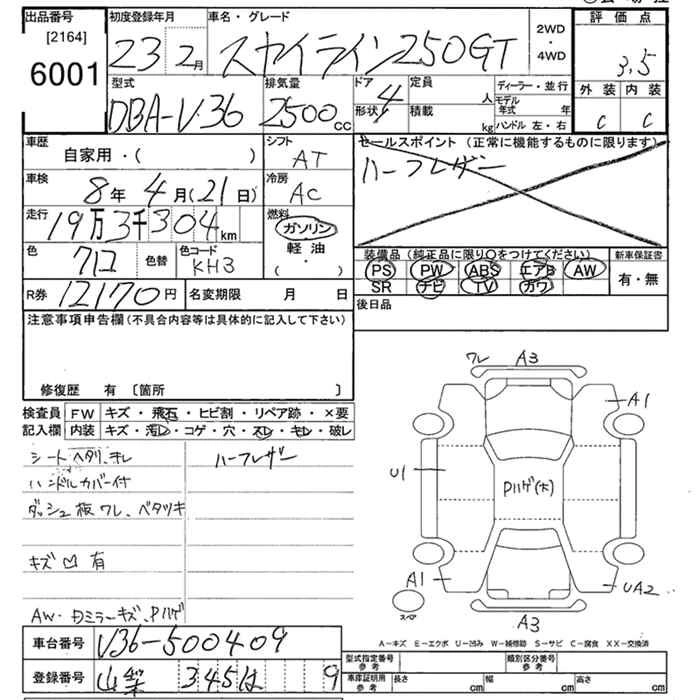 出品番号 初度登録年月 車名・グレード 評価点
[2164]
6001
23 2月 スカイライン250GT
2WD
・
4WD
3.5
型式 排気量 ドア 定員 ディーラー・並行 外装 内装
DBA-V36 2500cc 4 形状 積載 人 kg
モデル年式 年
ハンドル 左・右
C C
車歴 シフト セールスポイント (正常に機能するものに限ります)
自家用・( ) AT ハーフレザー
車検 冷房
8年4月(21日) AC
走行 燃料
19万3千304km ガソリン
軽油
・
( )
色 色替 色コード
クロ KH3
装備品 (純正品に限り○をつけてください) 新車保証書
PS PW ABS エアB AW 有・無
SR ナビ TV カワ
R券 12170円 名変期限 月 日
後日品
注意事項申告欄(不具合内容等は具体的に記入して下さい)
修復歴 有 〔箇所 〕
検査員 FW キズ・飛石・ヒビ割・リペア跡・×要
記入欄 内装 キズ・汚レ・コゲ・穴・スレ・キレ・破レ
シートヘタリ、キレ ハーフレザー
ハンドルカバー付
ダッシュ板ワレ、ベタツキ
キズ凹有
AW・ドミラーキズ、Pハゲ
ワレ A3
A1
U1
Pハゲ(大)
A1
UA2
スペア
A3
A-キズ E-エクボ U-凹み W-補修跡 S-サビ C-腐食 XX-交換済
車台番号 V36-500409
登録番号 345は 9
型式指定番号 参考 類別区分番号 参考
車庫証明用 参考 長さ cm 幅 cm 高さ cm